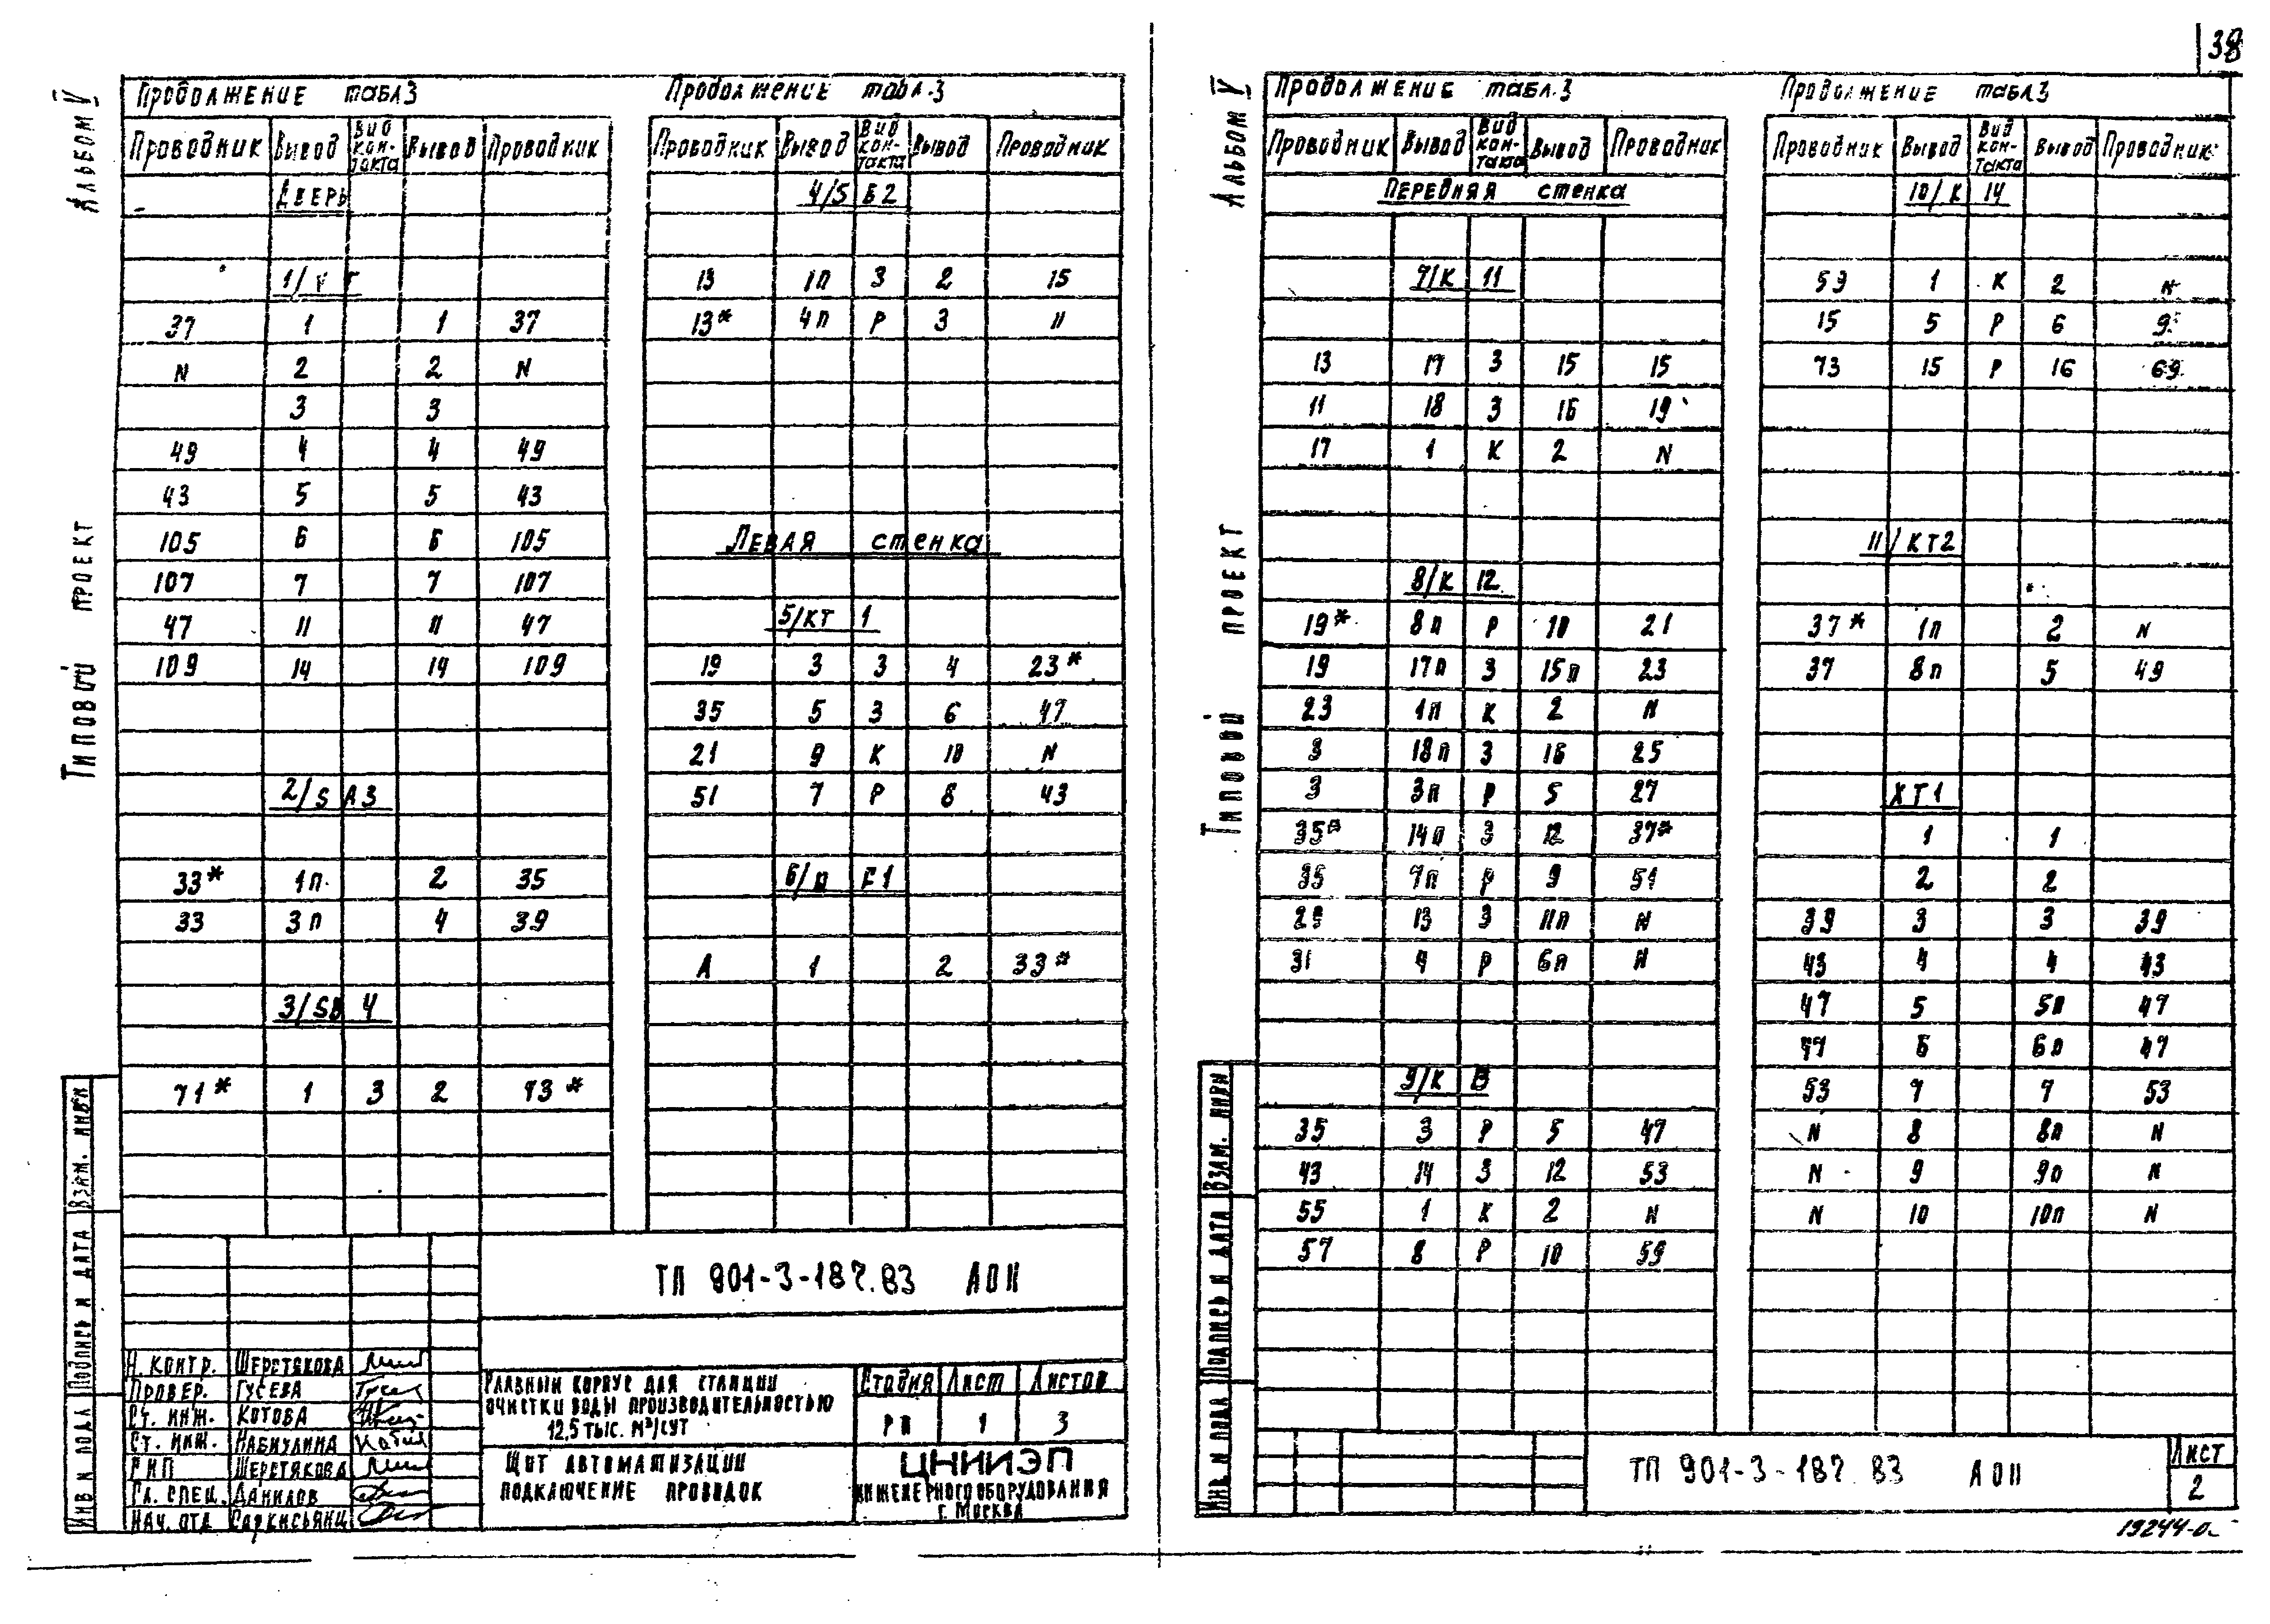 38
Альбом V
Типовой проект
Продолжение табл 3
Проводник Вывод Вид контакта Вывод Проводник
Дверь
1/
37 1 1 37
N 2 2 N
3 3
49 4 4 49
43 5 5 43
105 6 6 105
107 7 7 107
47 11 11 47
109 14 14 109
2/S А3
33* 1п 2 35
33 3п 4 39
3/SB 4
71* 1 З 2 73*
Продолжение табл.3
Проводник Вывод Вид контакта Вывод Проводник
4/S Б2
13 1п З 2 15
13* 4п Р 3 11
Левая стенка
5/КТ 1
19 3 З 4 23*
35 5 З 6 47
21 9 К 10 N
51 7 Р 8 43
6/ F1
А 1 2 33*
ТП 901-3-187.83 АОН
Н. контр. Шерстякова
Провер. Гусева
Ст. инж. Котова
Ст. инж. Набиулина
РИП Шерстякова
Гл. спец. Данилов
Нач. отд Саркисьянц
Главный корпус для станции
очистки воды производительностью
12,5 тыс. м³/сут
Щит автоматизации
подключение проводок
Стадия Лист Листов
РП 1 3
ЦНИИЭП
инженерного оборудования
г. Москва
Инв N подл Подпись и дата Взам. инв N
Альбом V
Типовой проект
Продолжение табл.3
Проводник Вывод Вид контакта Вывод Проводник
Передняя стенка
7/К 11
13 17 З 15 15
11 18 З 16 19
17 1 К 2 N
8/К 12
19* 8п Р 10 21
19 17п З 15п 23
23 1п К 2 N
3 18п З 16 25
3 3п Р 5 27
35* 14п З 12 37*
35 7п Р 9 51
29 13 З 11п N
31 4 Р 6п N
9/К 13
35 3 Р 5 47
43 14 З 12 53
55 1 К 2 N
57 8 Р 10 59
Продолжение табл 3
Проводник Вывод Вид контакта Вывод Проводник
10/К 14
59 1 К 2 N
15 5 Р 6 9
73 15 Р 16 69
11/КТ2
37* 1п 2 N
37 8п 5 49
ХТ1
1 1
2 2
39 3 3 39
43 4 4 43
47 5 5п 47
47 6 6п 47
53 7 7 53
N 8 8п N
N 9 9п N
N 10 10п N
ТП 901-3-187.83 АОН
Лист
2
Инв N подл Подпись и дата Взам. инв N
19244-0